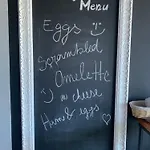 Menu
Eggs
Scrambled
Omelette
w cheese
Ham & eggs